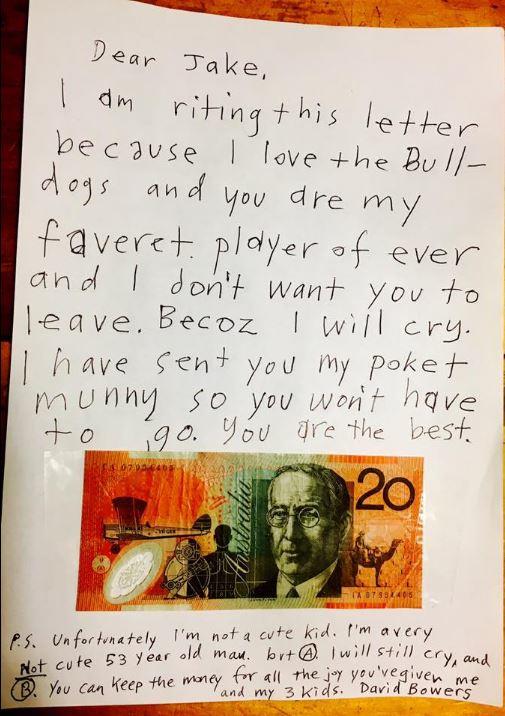 Dear Jake,
I am riting this letter
because I love the Bull-
dogs and you are my
faveret player of ever
and I don't want you to
leave. Becoz I will cry.
I have sent you my poket
munny so you won't have
to go. You are the best.
Australia
20
P.S. Unfortunately I'm not a cute kid. I'm a very
Not cute 53 year old man. but Ⓐ. I will still cry, and
Ⓑ. You can keep the money for all the joy you've given me
and my 3 kids. David Bowers